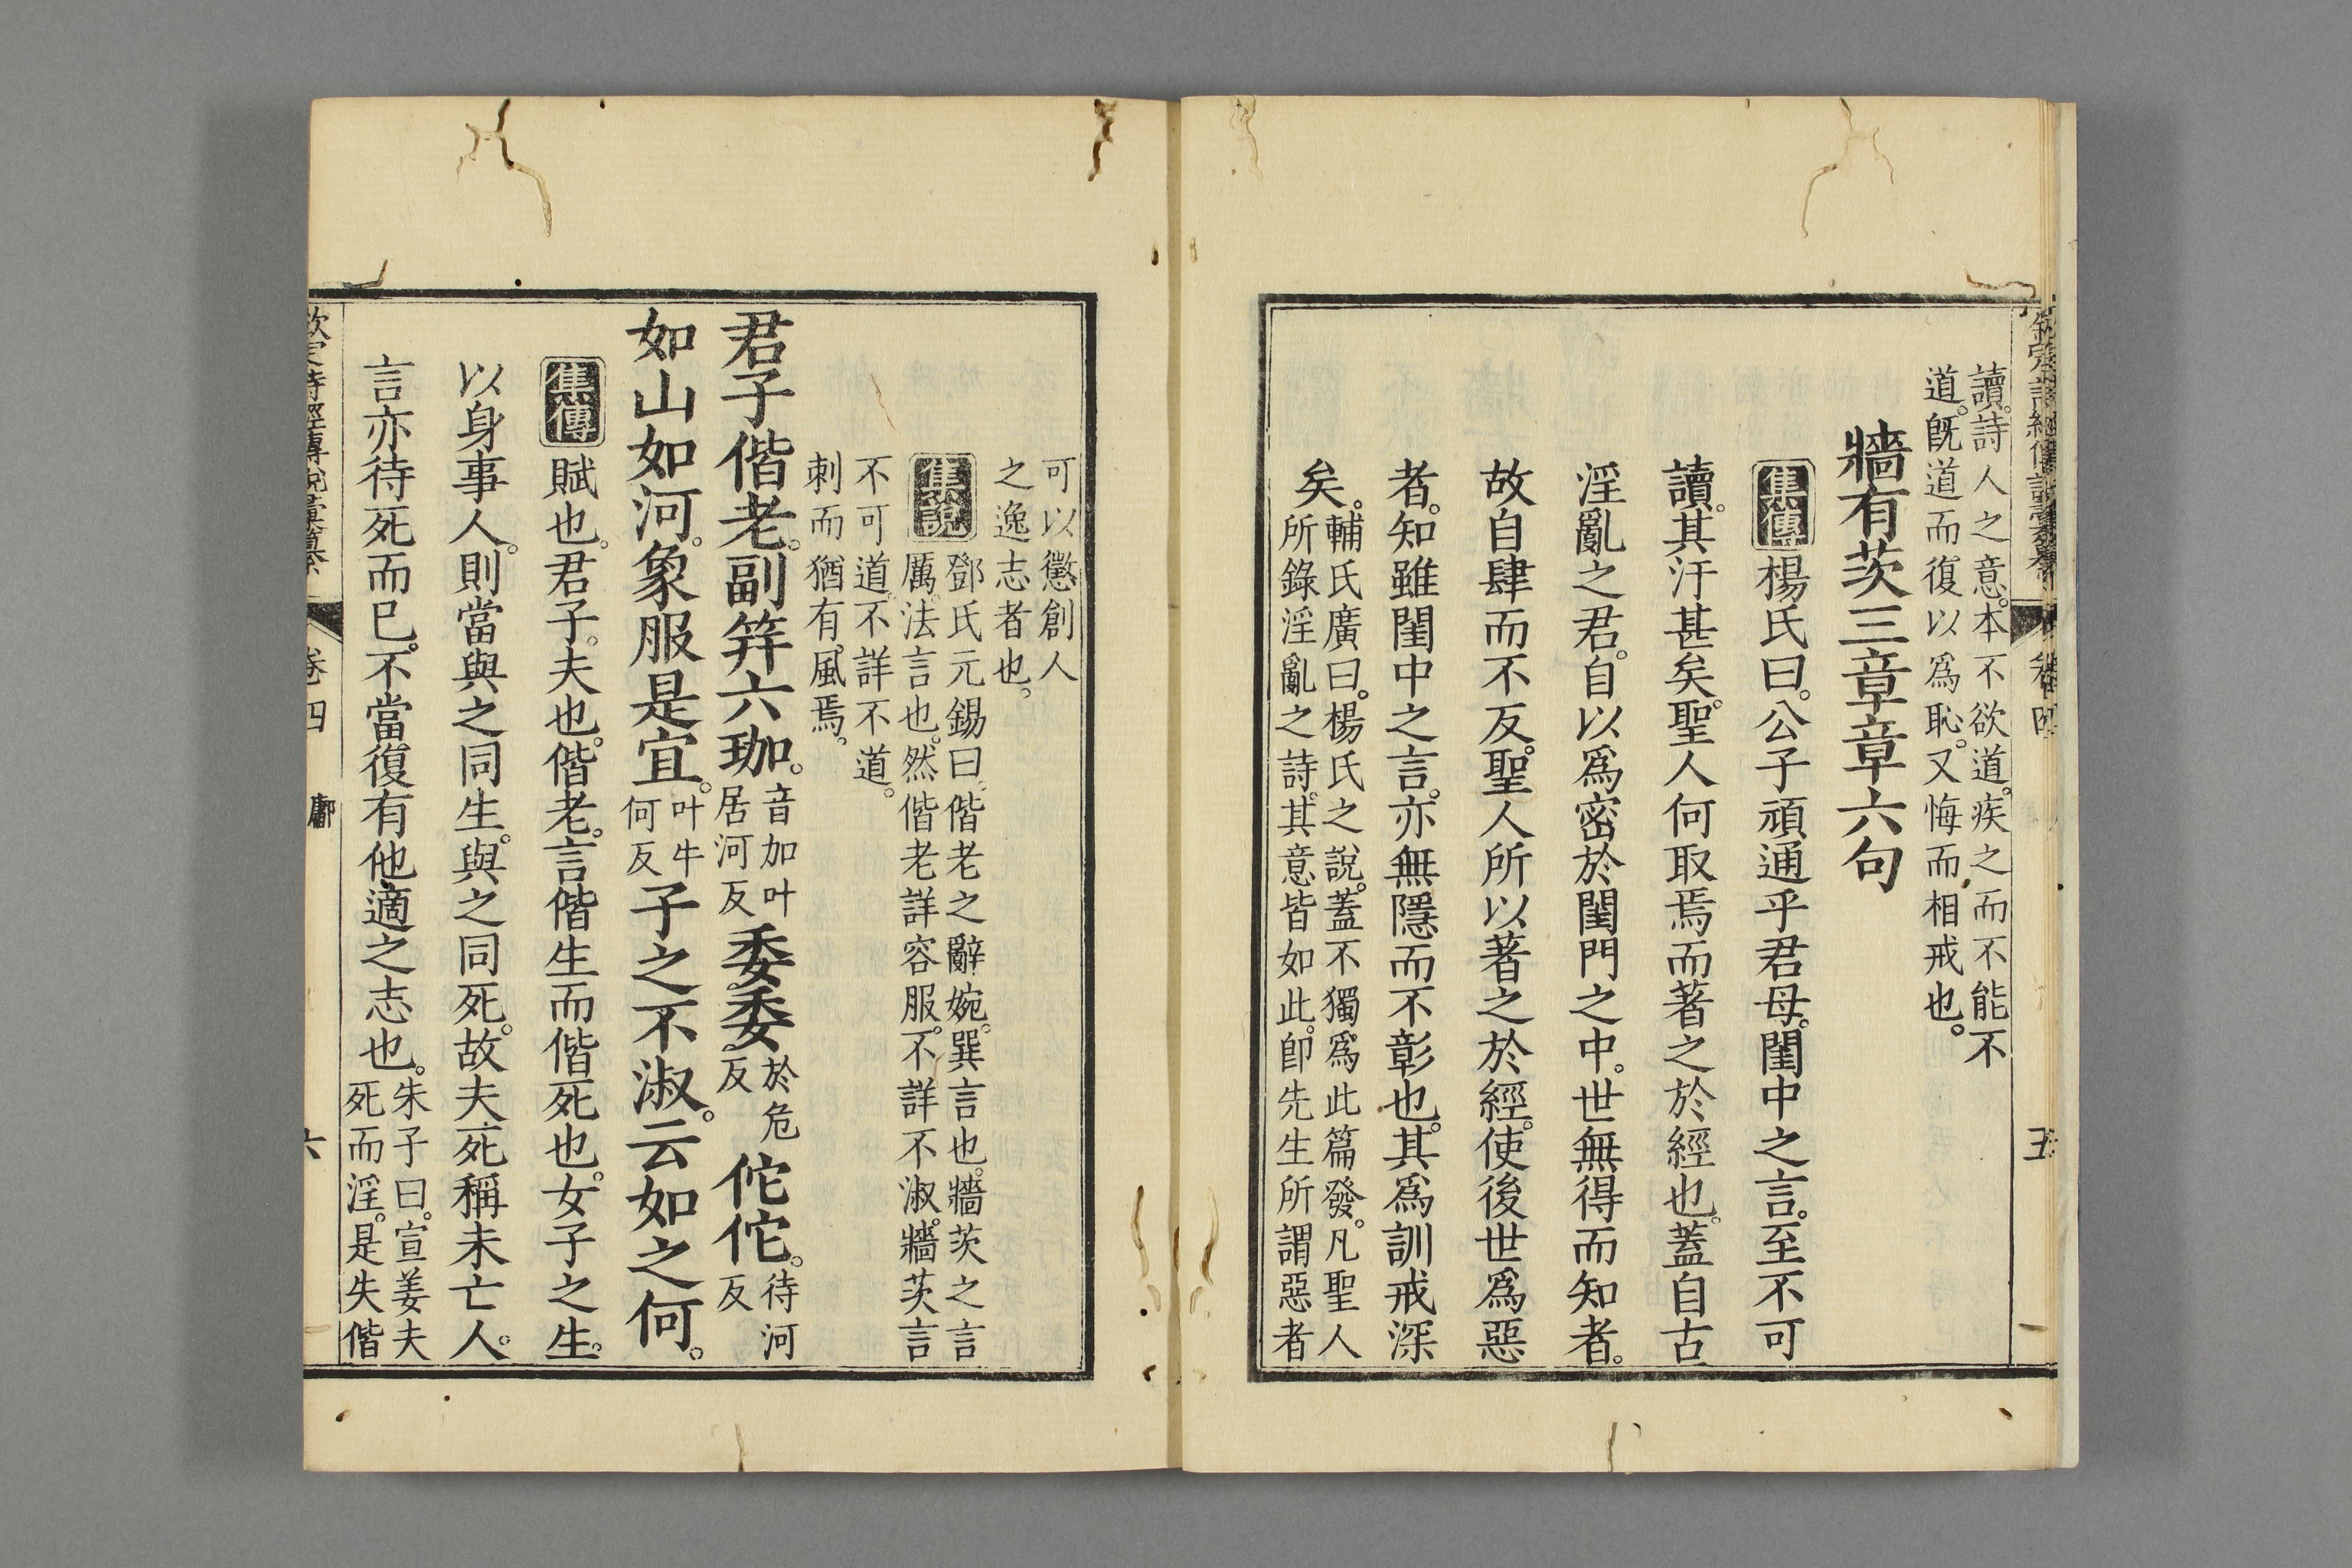 欽定詩經傳說彙纂 卷四 五
讀。詩人之意。本不欲道。疾之而不能不
道。旣道而復以爲恥。又悔而相戒也。
牆有茨三章章六句
集傳 楊氏曰。公子頑通乎君母。閨中之言。至不可
讀。其汙甚矣。聖人何取焉而著之於經也。蓋自古
淫亂之君。自以爲密於閨門之中。世無得而知者。
故自肆而不反。聖人所以著之於經。使後世爲惡
者。知雖閨中之言。亦無隱而不彰也。其爲訓戒深
矣。
輔氏廣曰。楊氏之說。蓋不獨爲此篇發。凡聖人
所錄淫亂之詩。其意皆如此。卽先生所謂惡者
可以懲創人
之逸志者也。
集說 鄧氏元錫曰。偕老之辭婉。巽言也。牆茨之言
厲。法言也。然偕老詳容服。不詳不淑。牆茨言
不可道。不詳不道。
刺而猶有風焉。
君子偕老。副笄六珈。音加叶居河反委委於危反佗佗。待河反
如山如河。象服是宜。叶牛何反子之不淑。云如之何。
集傳 賦也。君子。夫也。偕老。言偕生而偕死也。女子之生。
以身事人。則當與之同生。與之同死。故夫死稱未亡人。
言亦待死而已。不當復有他適之志也。朱子曰。宣姜夫
死而淫。是失偕
欽定詩經傳說彙纂 卷四 鄘 六